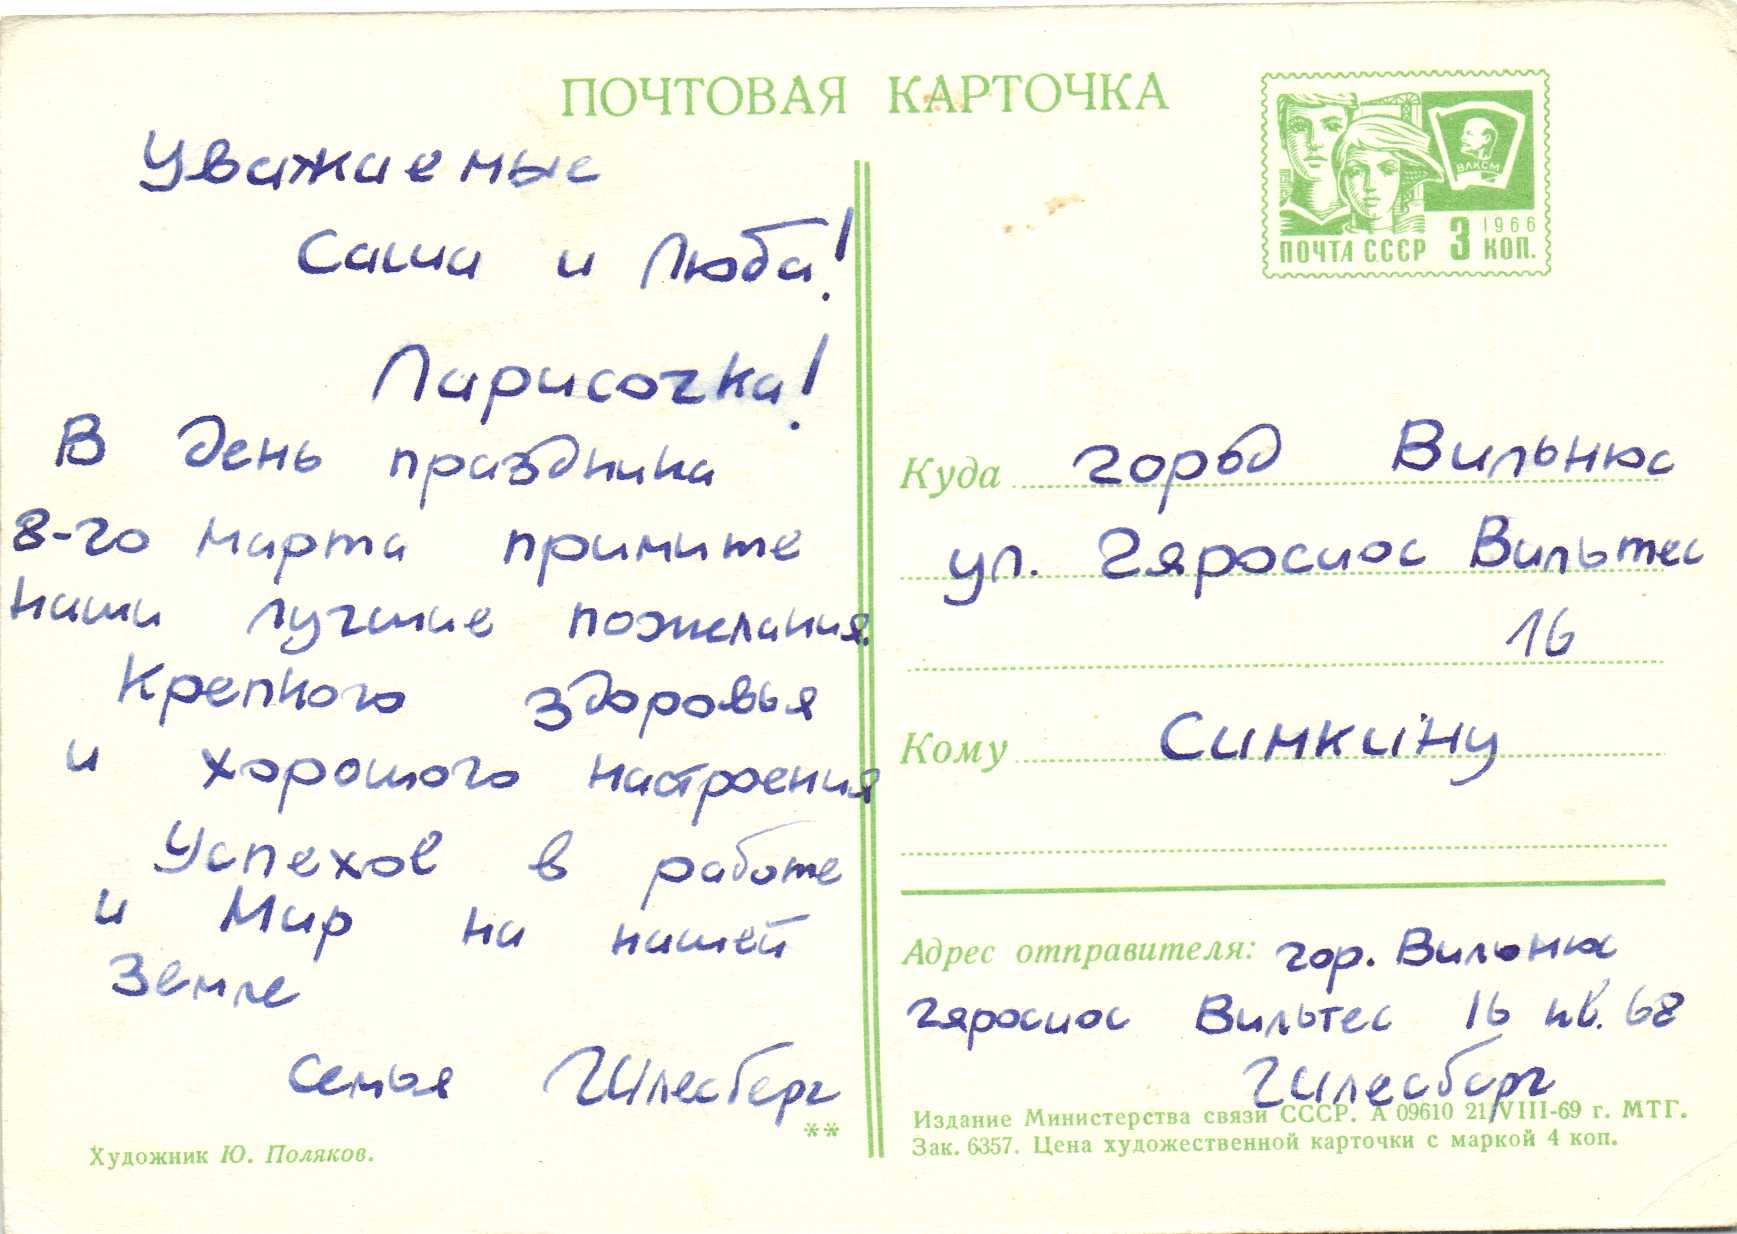 ПОЧТОВАЯ КАРТОЧКА
ВЛКСМ
1966
ПОЧТА СССР 3 КОП.
Уважаемые
Саша и Люба!
Ларисочка!
В день праздника
8-го марта примите
наши лучшие пожелания.
Крепкого здоровья
и хорошего настроения
Успехов в работе
и Мир на нашей
Земле
Семья Гилесберг
**
Художник Ю. Поляков.
Куда город Вильнюс
ул. Гяросиос Вильтес
16
Кому Симкину
Адрес отправителя: гор. Вильнюс
Гяросиос Вильтес 16 кв. 68
Гилесберг
Издание Министерства связи СССР. А 09610 21/VIII-69 г. МТГ.
Зак. 6357. Цена художественной карточки с маркой 4 коп.